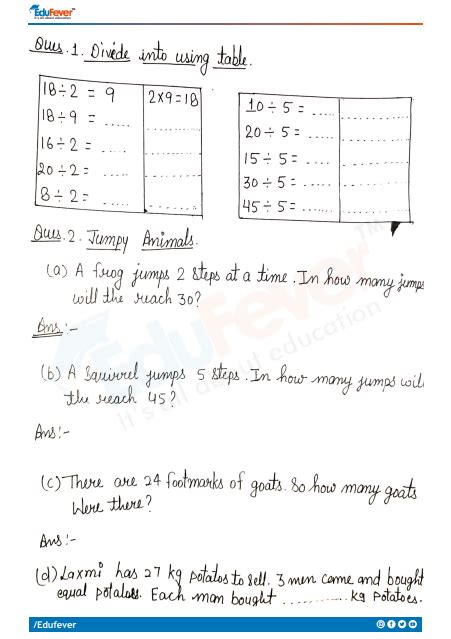 EduFever
It's all about education
Ques.1. Divide into using table.
18÷2 = 9 2×9=18
18÷9 = .....
16÷2 = .....
20÷2= .....
8÷2= .....
10÷5 = .....
20÷5 = .....
15÷5 = .....
30÷5 = .....
45÷5 = .....
Ques.2. Jumpy Animals.
(a) A frog jumps 2 steps at a time. In how many jumps
will the reach 30?
Ans:-
EduFever TM
It's all about education
(b) A Squirrel jumps 5 steps. In how many jumps will
the reach 45?
Ans:-
(c) There are 24 footmarks of goats. So how many goats
Were there?
Ans:-
(d) Laxmi has 27 kg potatos to sell. 3 men came and bought
equal potatoes. Each man bought ............ kg potatoes.
/Edufever www.edufever.com